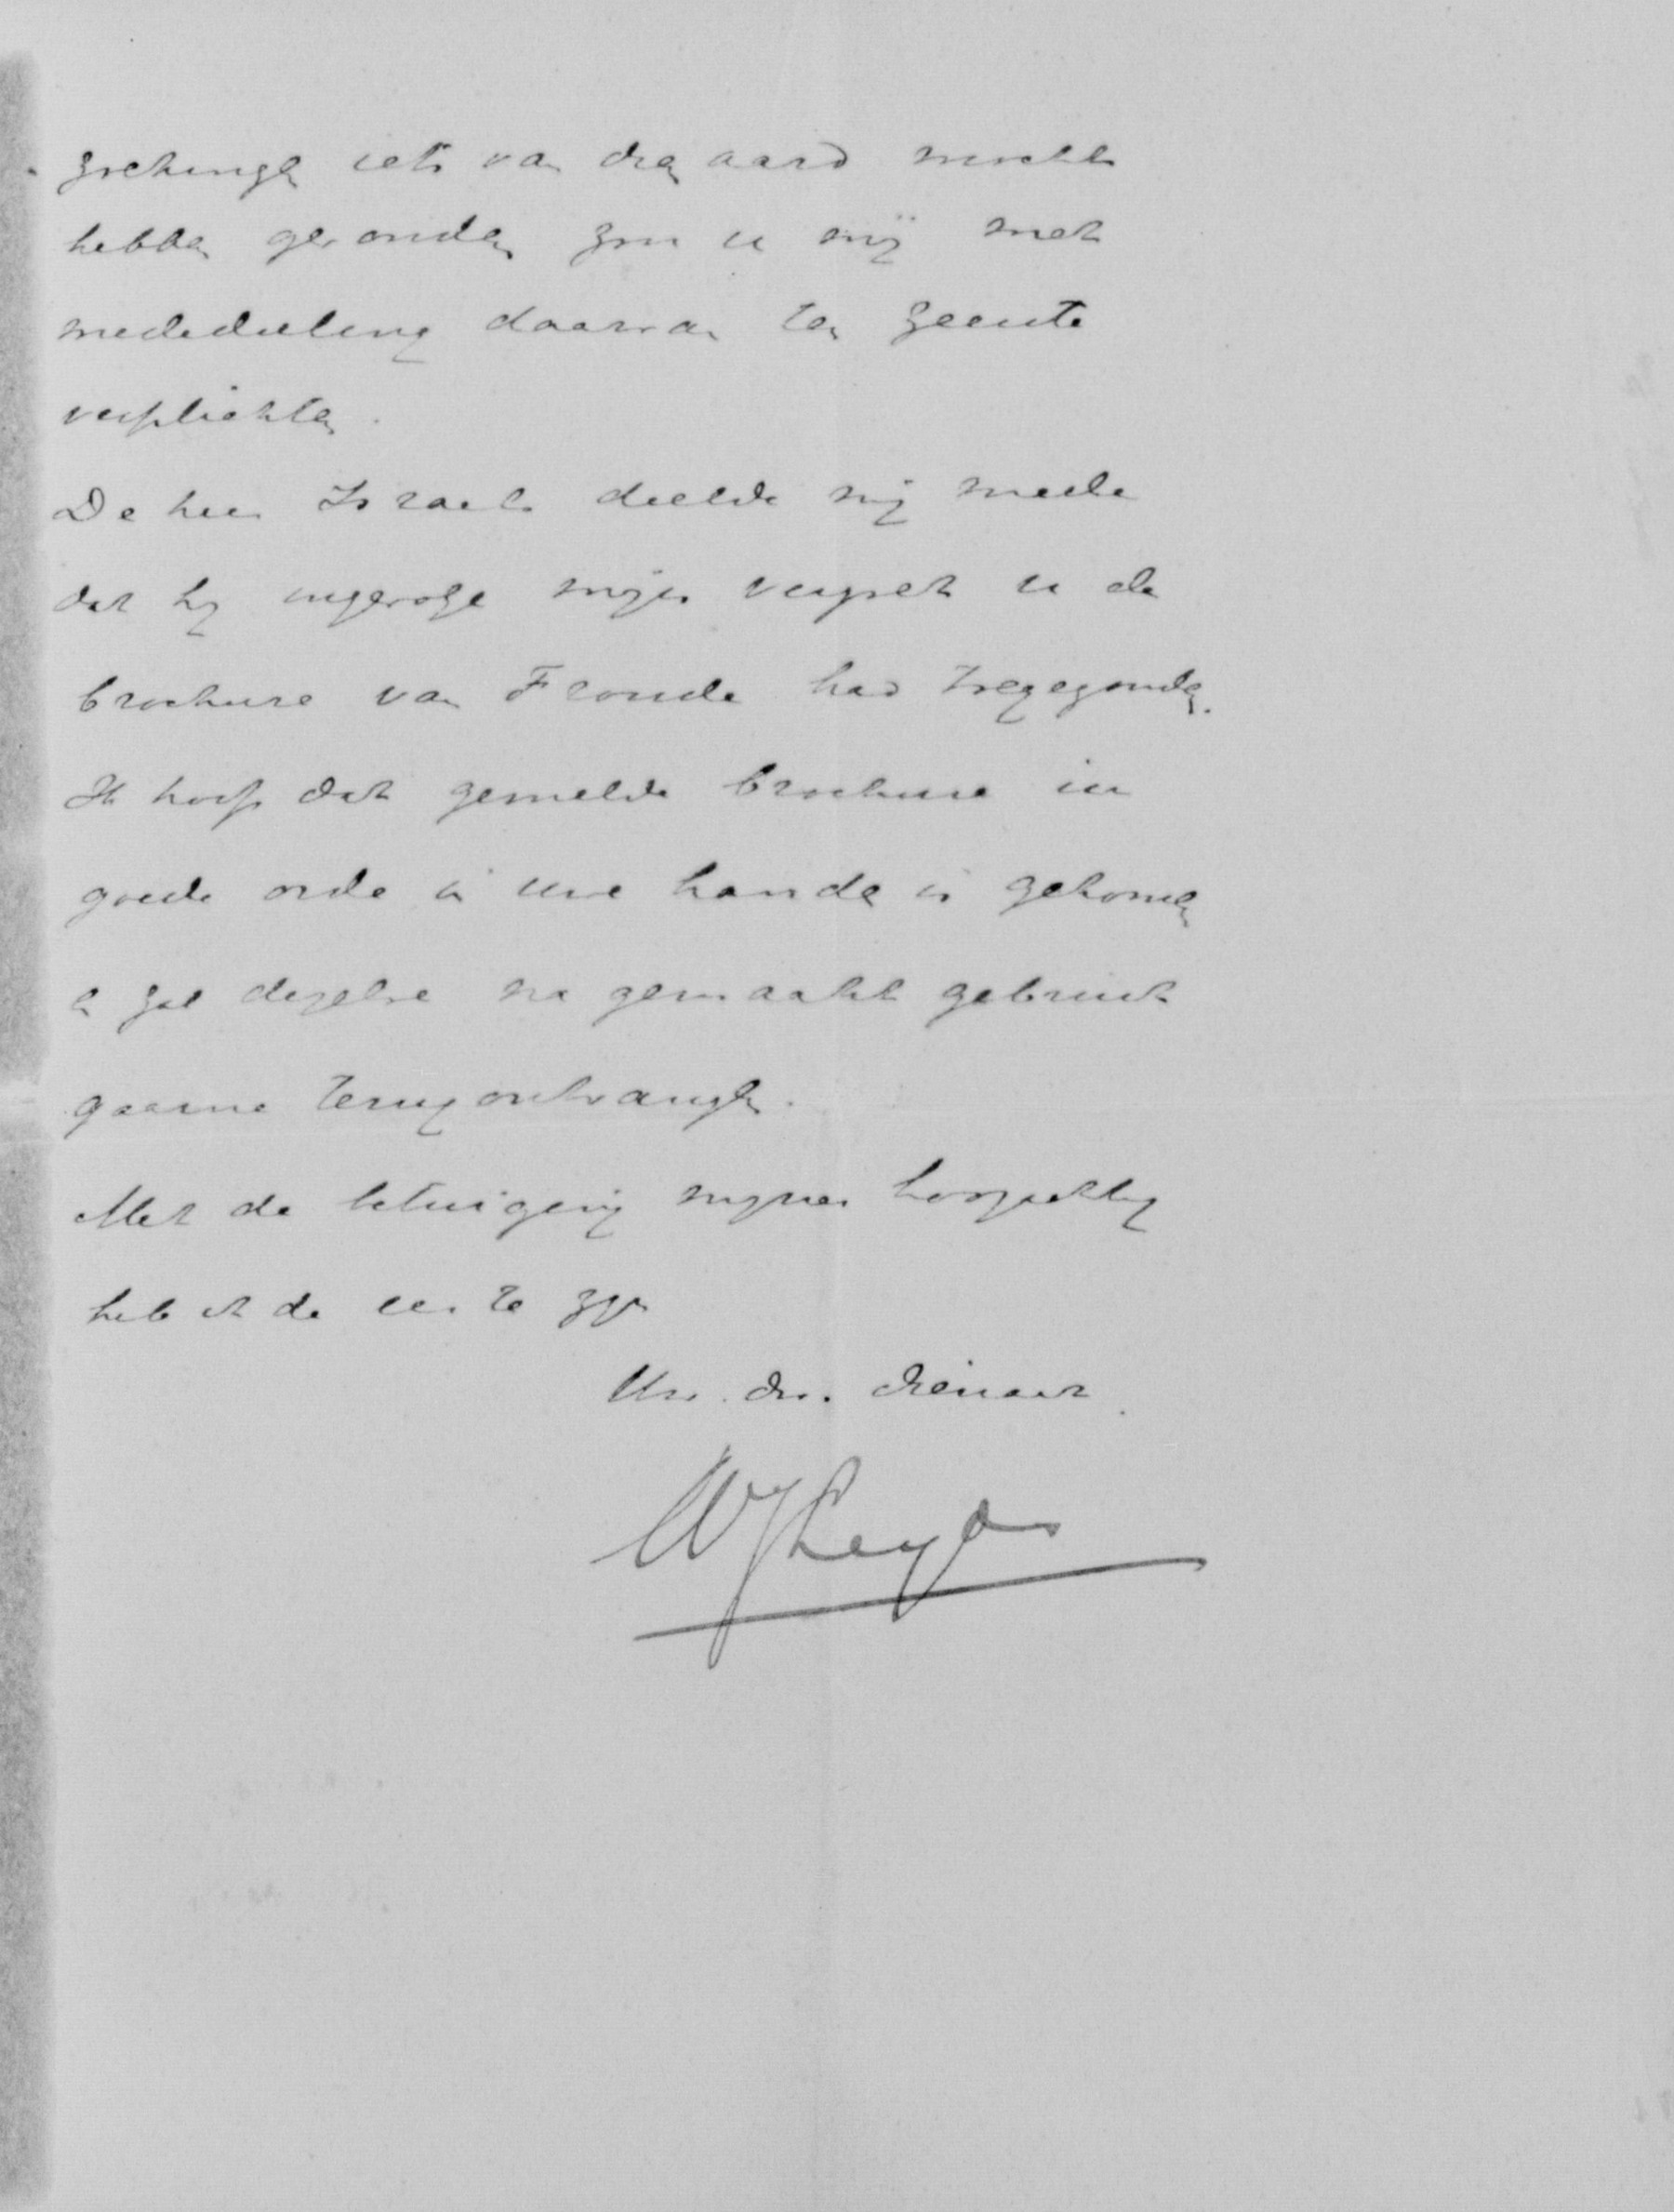 zoekingen iets van dien aard mocht
hebben gevonden zou u mij met
mededeeling daarvan ten zeerste
verplichten.
De heer Israels deelde mij mede
dat hij ingevolge mijn verzoek u de
brochure van Froude had toegezonden.
Ik hoop dat gemelde brochure in
goede orde in uwe handen is gekomen
en zal dezelve na gemaakt gebruik
gaarne terugontvangen.
Met de betuiging mijner hoogachting
heb ik de eer te zijn
Uw. dw. dienaar
WJLeyds